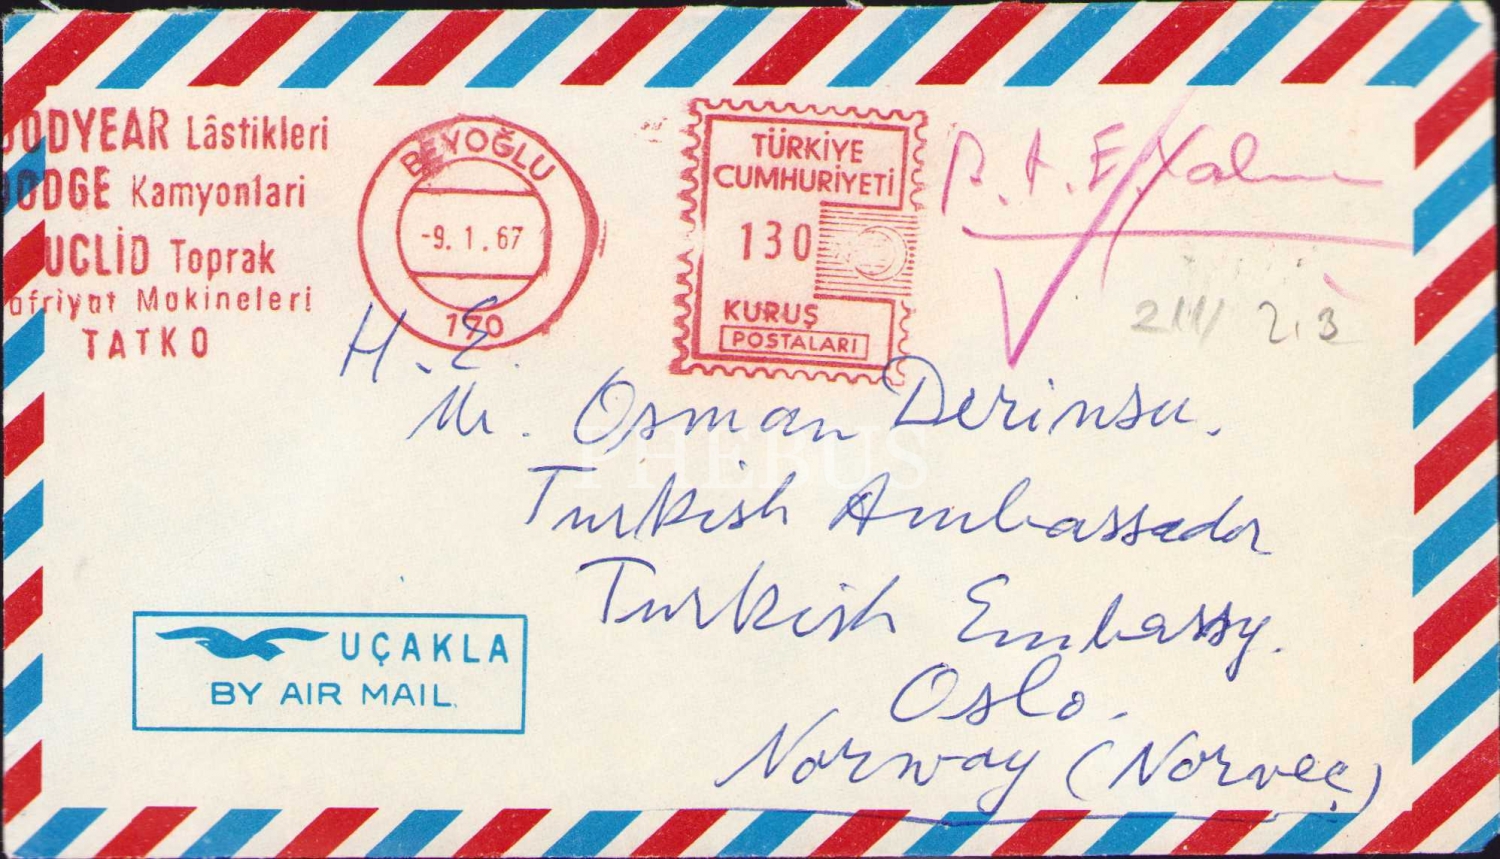 OODYEAR Lâstikleri
ODGE Kamyonlari
UCLİD Toprak
afriyat Makineleri
TATKO
BEYOĞLU
-9. 1. 67
170
TÜRKİYE
CUMHURİYETİ
130
KURUŞ
POSTALARI
H. E.
M. Osman Derinsu.
Turkish Ambassador
Turkish Embassy.
Oslo.
Norway (Norveç)
UÇAKLA
BY AIR MAIL
PHEBUS